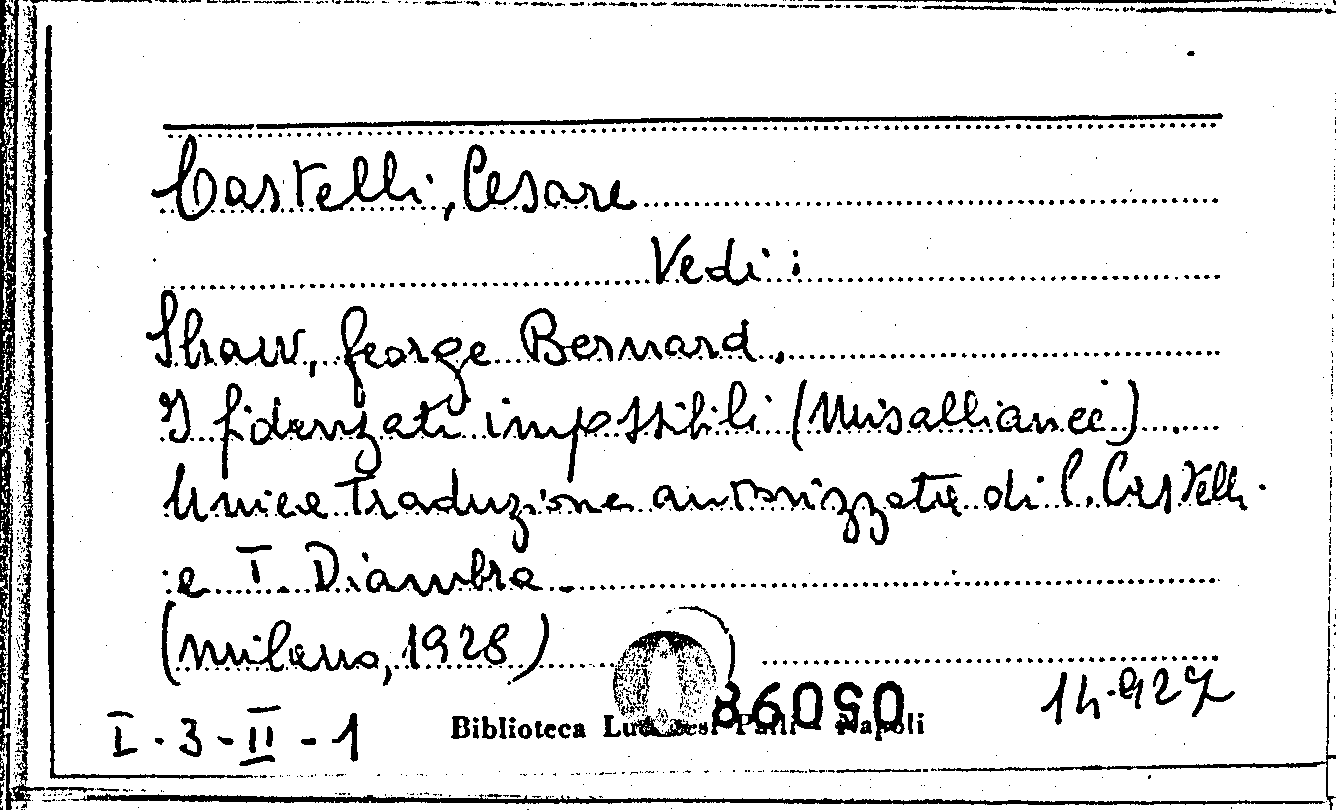 Castelli, Cesare
Vedi:
Shaw, George Bernard.
I fidanzati impossibili (Misalliance).
Unica traduzione autorizzata di C. Castelli
e T. Diambra.
(Milano, 1928)
14.927
I-3-II-1
Biblioteca Lucchesi Palli - Napoli